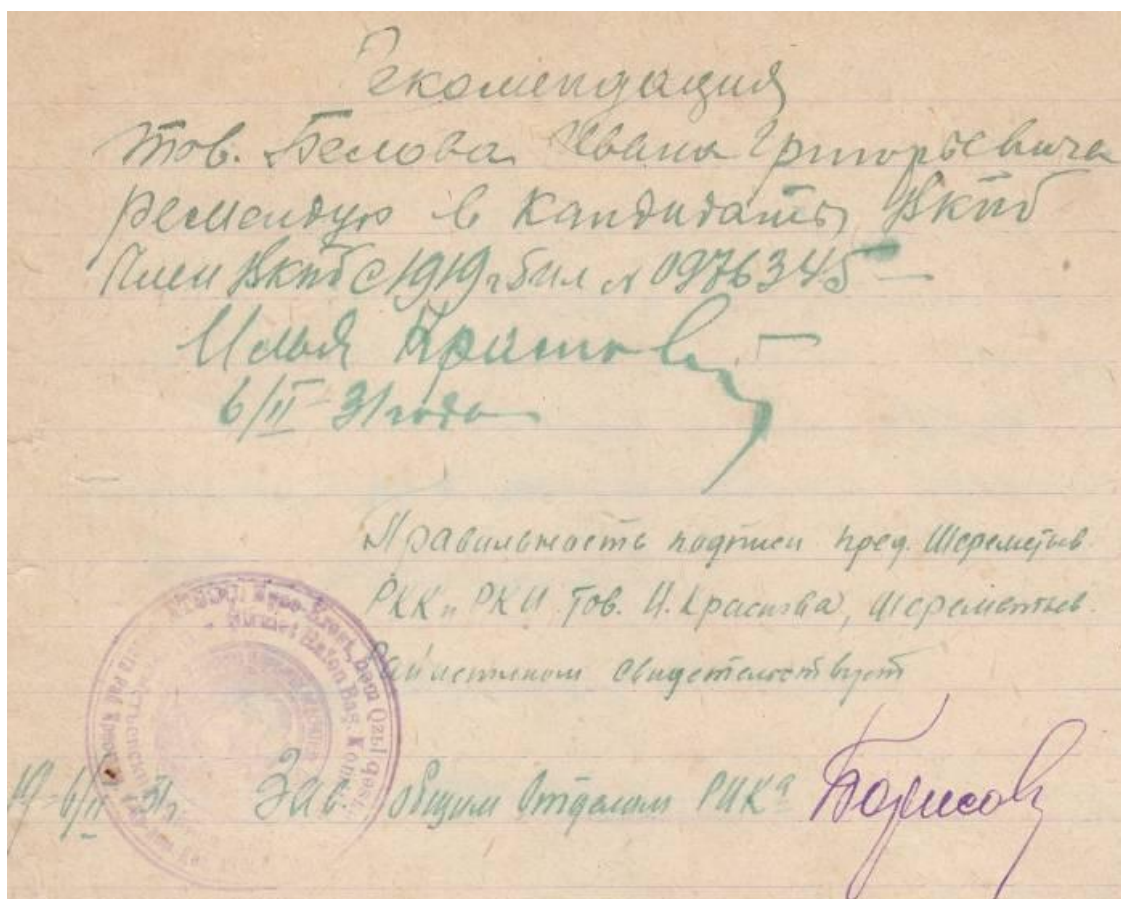 Рекомендация
тов. Белова Ивана Григорьевича
ремендую в кандидаты ВКПб
Член ВКПб с 1919 г бил № 0976345
Илья
6/II-31 года
Правильность подписи пред. Шереметьев.
РКК и РКИ тов. И. Краснова, Шереметьев.
Райисполком свидетельствует
19 6/II 31г. Зав общим Отделом РИКа Борисов